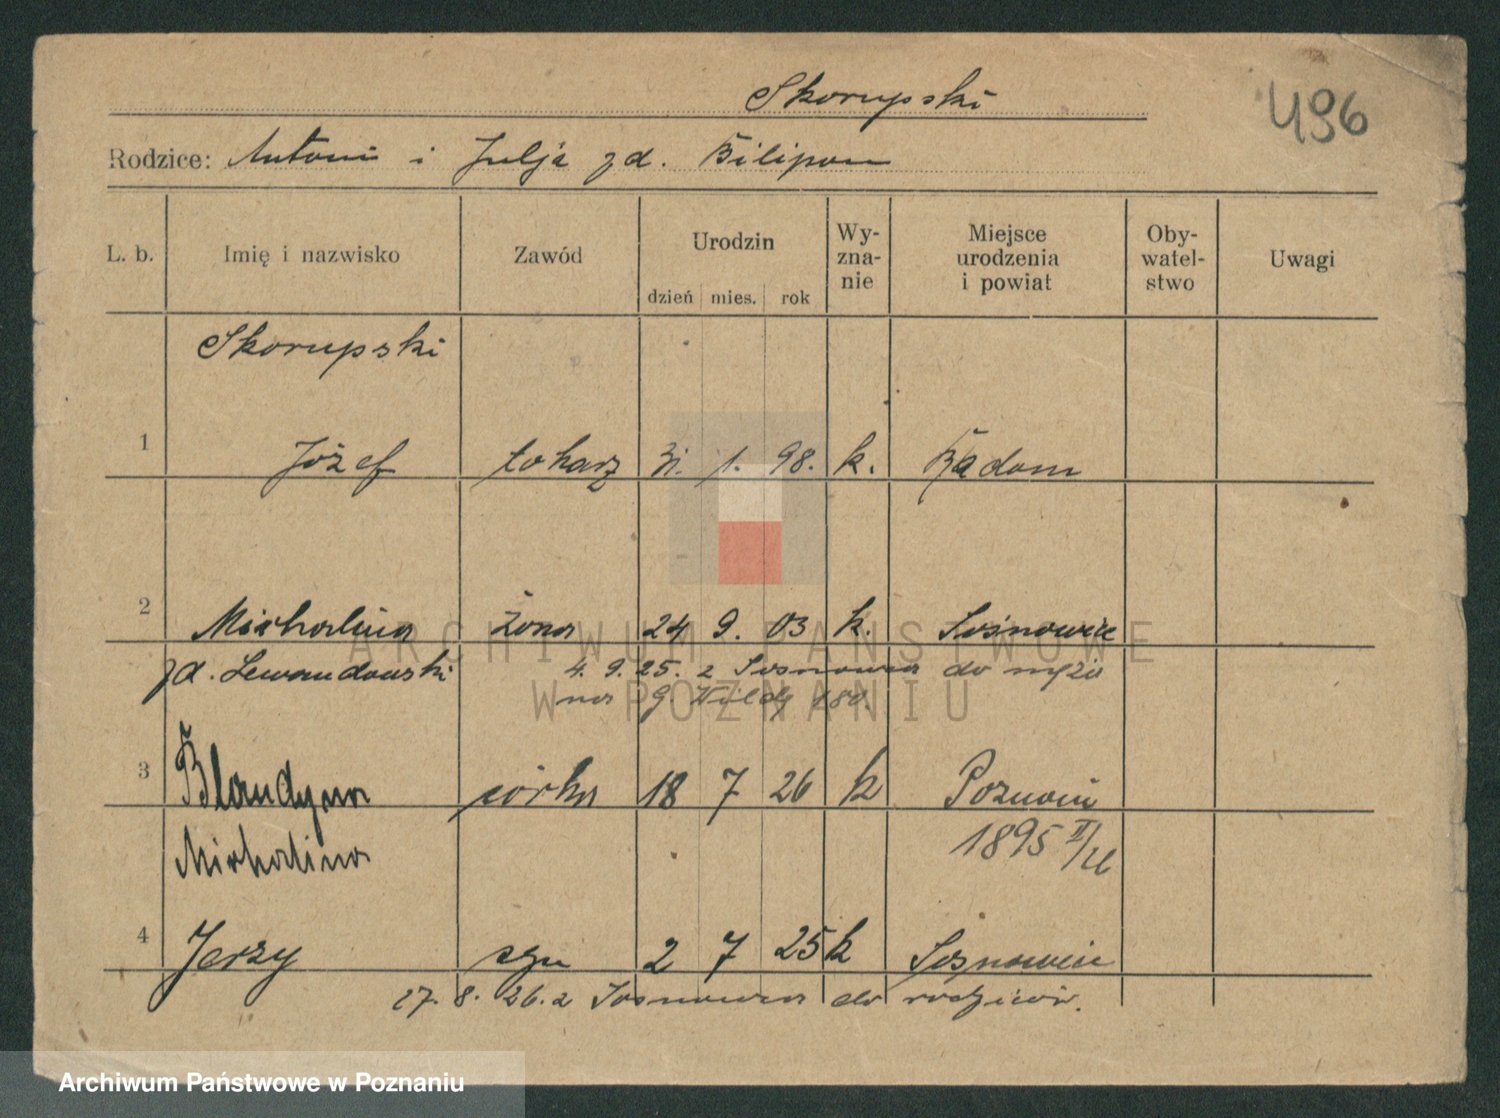 Skorupski
496
Rodzice: Antoni i Julja zd. Bilipon
L. b. Imię i nazwisko Zawód Urodzin dzień mies. rok Wyznanie Miejsce urodzenia i powiat Obywatelstwo Uwagi
Skorupski
1 Józef tokarz 31. 1. 98. k. Radom
2 Michalina żona 24 9. 03 k. Sosnowiec
zd. Lewandowski 4. 9. 25. z Sosnowca do męża
na G. Wildę 180.
3 Blandyna córka 18 7 26 k Poznań
Michalina 1895 II/
4 Jerzy syn 2 7 25 k Sosnowiec
17. 8. 26. z Sosnowca do rodziców.
ARCHIWUM PAŃSTWOWE
W POZNANIU
Archiwum Państwowe w Poznaniu